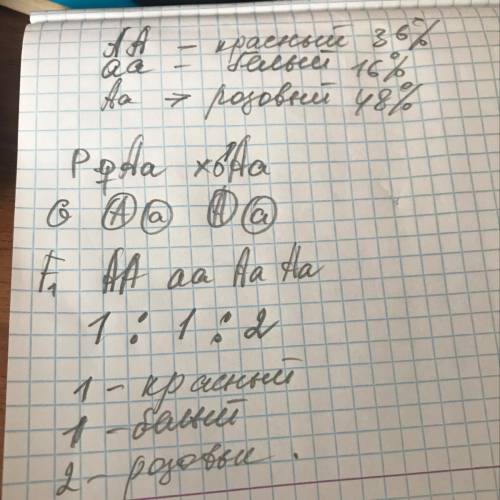 AA – красный 36%
аа – белый 16%
Аа → розовый 48%
P ♀Aa x ♂Aa
G A a A a
F₁ AA aa Aa Aa
1 : 1 : 2
1 – красный
1 – балый
2 – розовые.